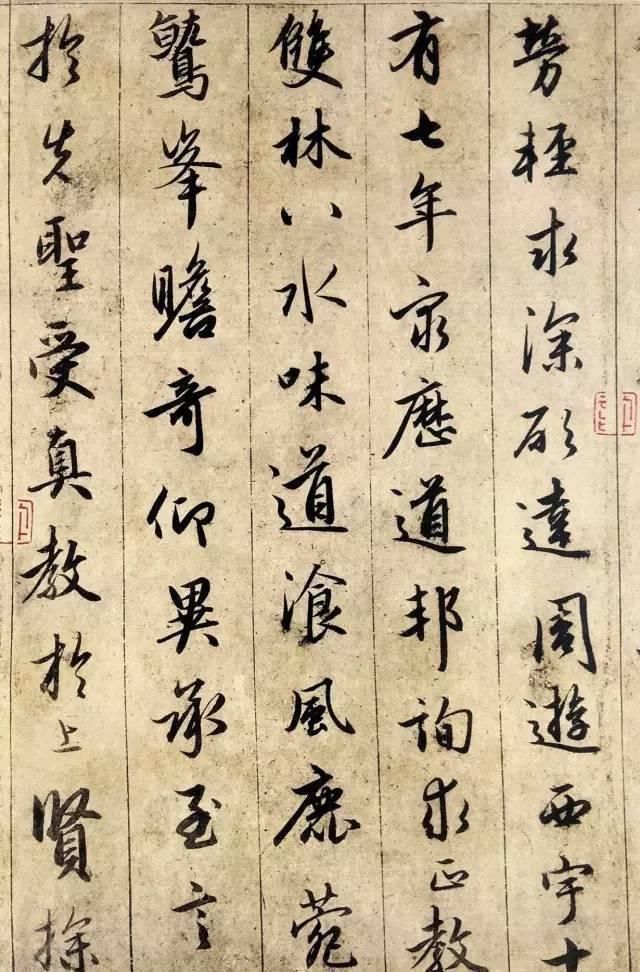 勞輕求深願達周遊西宇十
有七年窮歷道邦詢求正教
雙林八水味道飡風鹿菀
鷲峯瞻奇仰異承至言
於先聖受真教於上賢探